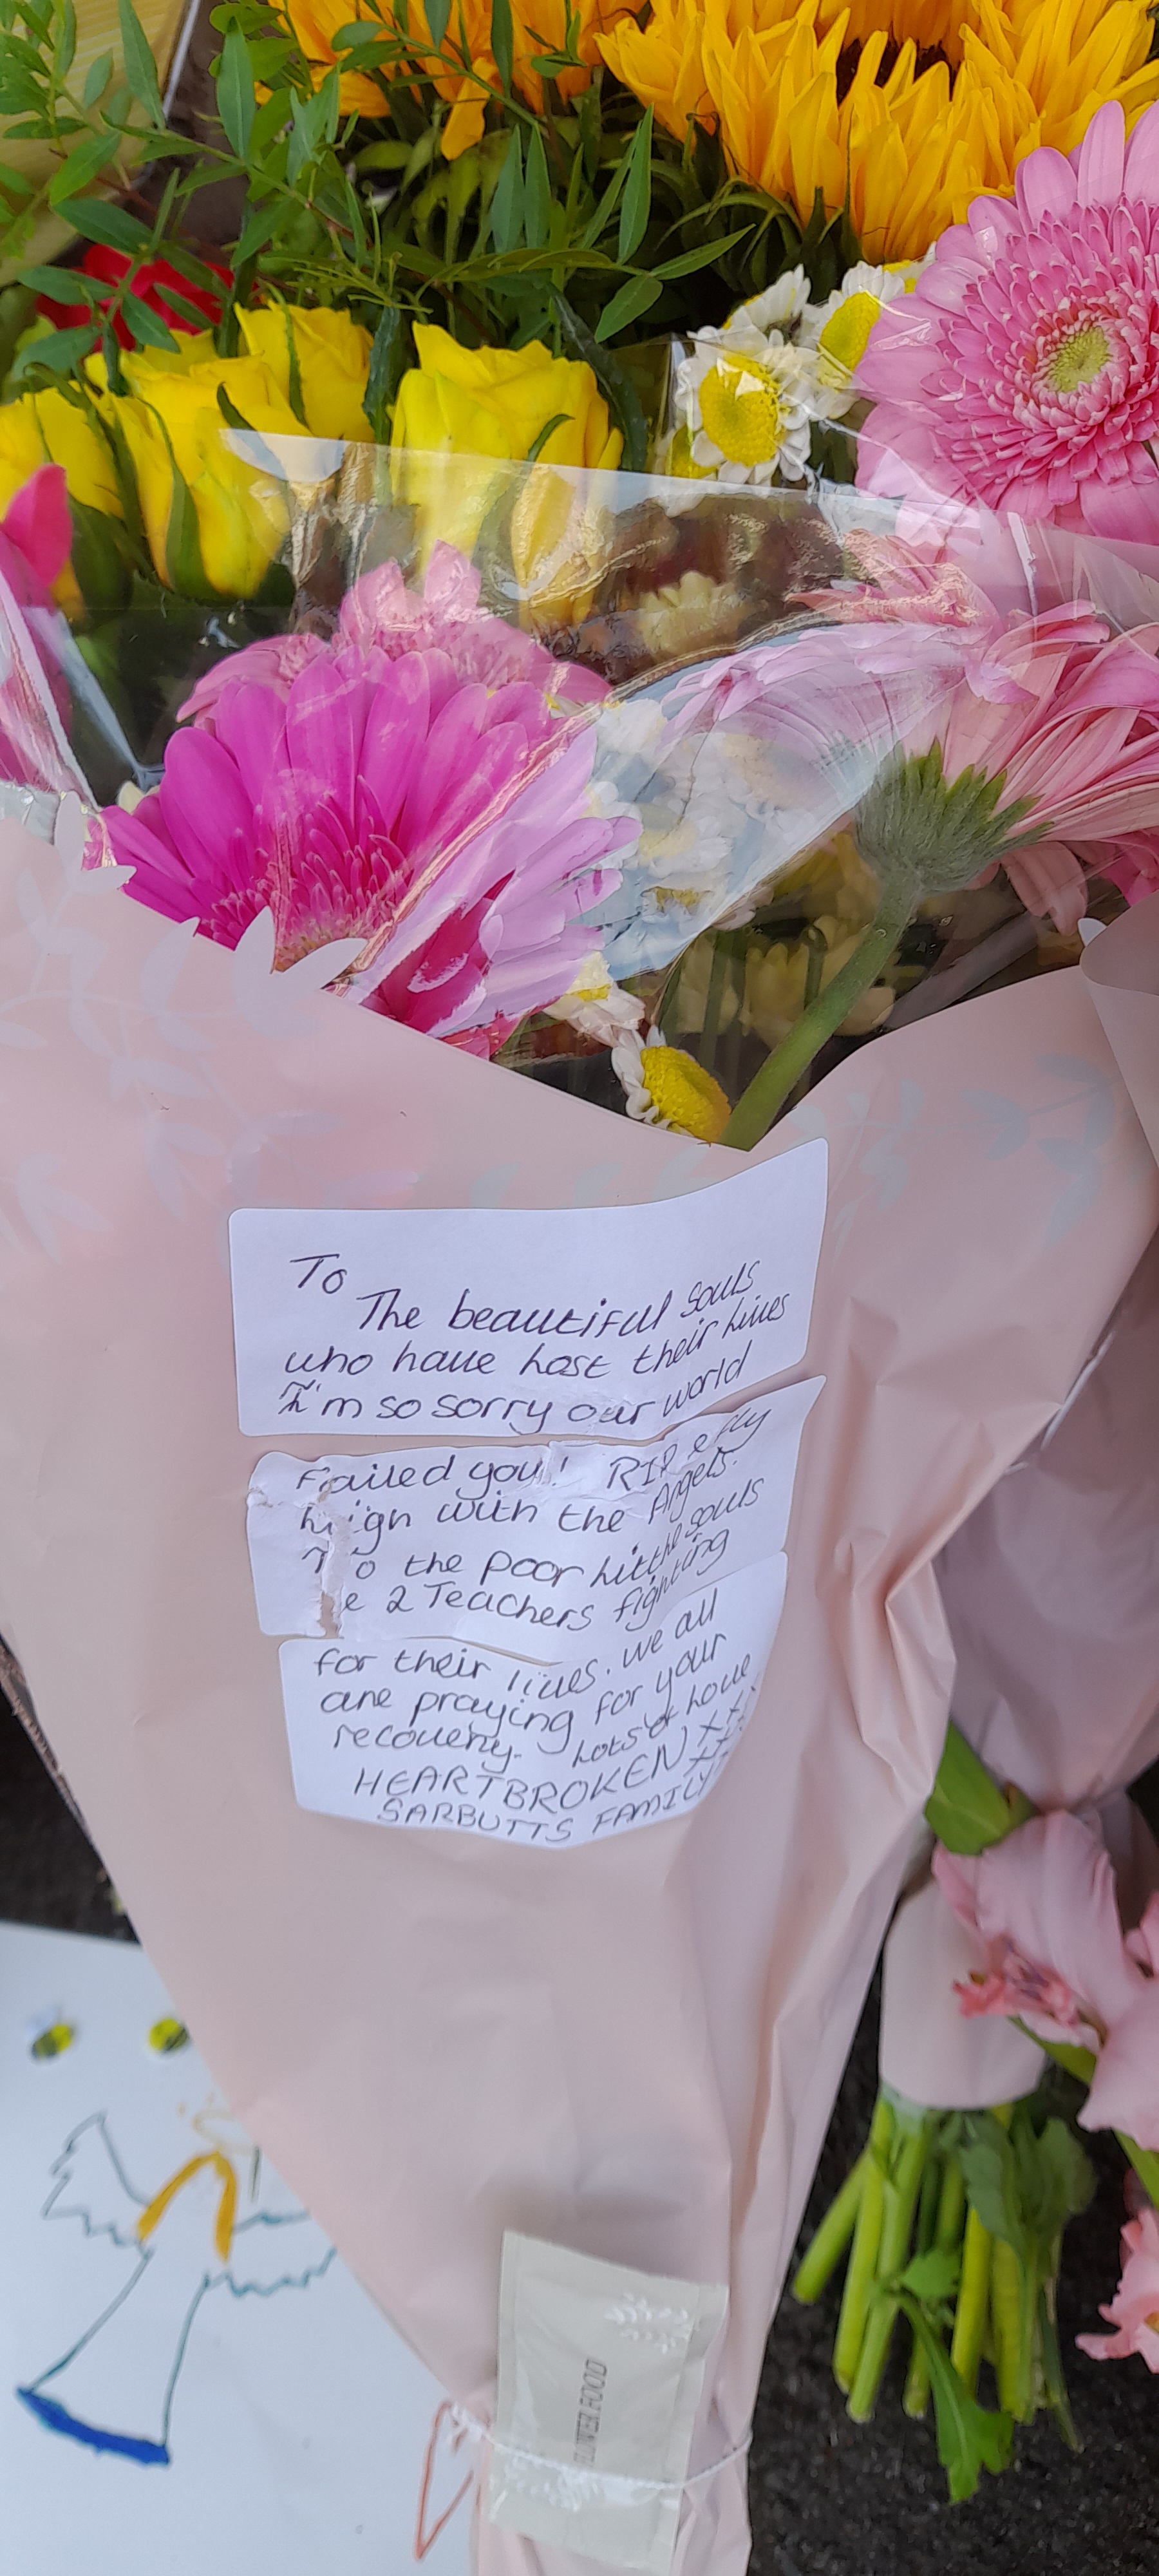 To
The beautiful souls
who have Lost their Lives
I'm so sorry our world
Failed you! RIP & fly
high with the Angels.
To the poor Little souls
& 2 Teachers fighting
for their lives. we all
are praying for your
recovery. Lots of Love
HEARTBROKEN xxx
SARBUTTS FAMILY
FLOWER FOOD